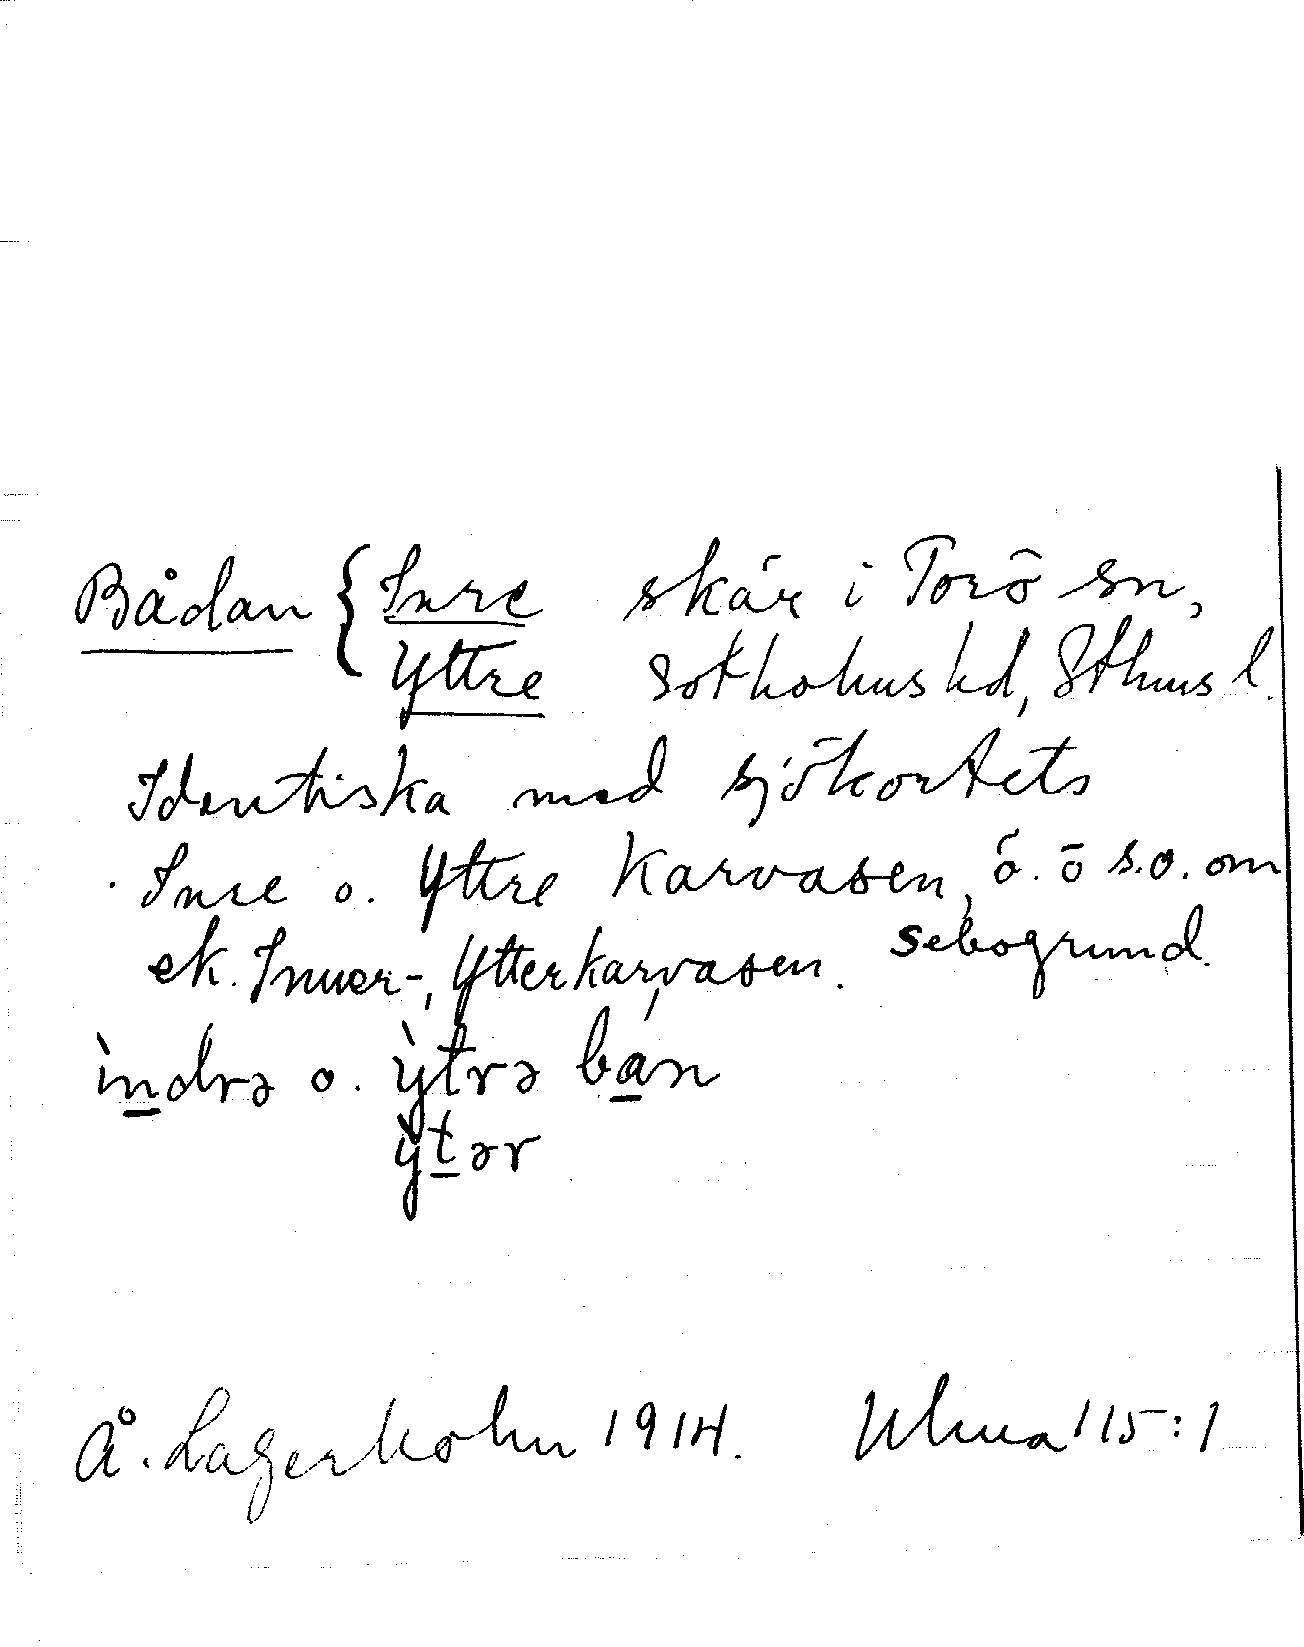 Bådan { Inre skär i Torö sn,
Yttre Sotholms hd, Sthms l.
Identiska med sjökortets
Inre o. Yttre Karvasen, ö. o s.o. om
ek. Inner-, Ytterkarvasen. Sebogrund.
ìndrə o. ỳtrə bån
ỳtər
Å. Lagerholm 1914. Uluma 115:1